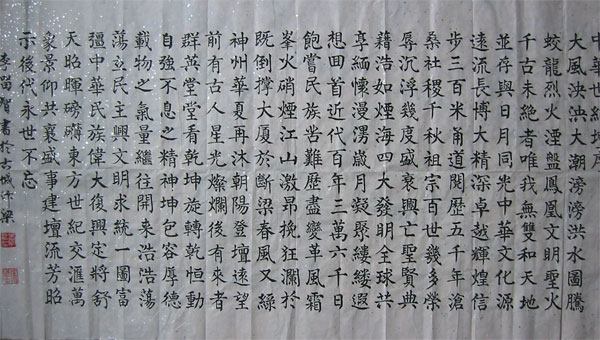 中華世紀壇序
大風泱泱大潮滂滂洪水圖騰
蛟龍烈火湮盤鳳凰文明聖火
千古未絕者唯我無雙和天地
並存與日月同光中華文化源
遠流長博大精深卓越輝煌信
步三百米甬道閱歷五千年滄
桑社稷千秋祖宗百世幾多榮
辱沉浮幾度盛衰興亡聖賢典
籍浩如煙山四大發明全球共
享緬懷漫漫歲月凝聚縷縷遐
想回首近代百年三萬六千日
飽嘗民族苦難歷盡變革風霜
峯火硝煙江山激昂挽狂瀾於
既倒撐大厦於斷梁春風又綠
神州華夏再沐朝陽登壇遠望
前有古人星光燦爛後有來者
群英堂堂看乾坤旋轉乾恒動
自強不息之精神坤包容厚德
載物之氣量繼往開來浩浩蕩
蕩立民主興文明求統一圖富
彊中華民族偉大復興定將舒
天昭暉磅礴東方世紀交滙萬
象景仰共襄盛事建壇流芳昭
示後代永世不忘
李留智書於古城汴梁